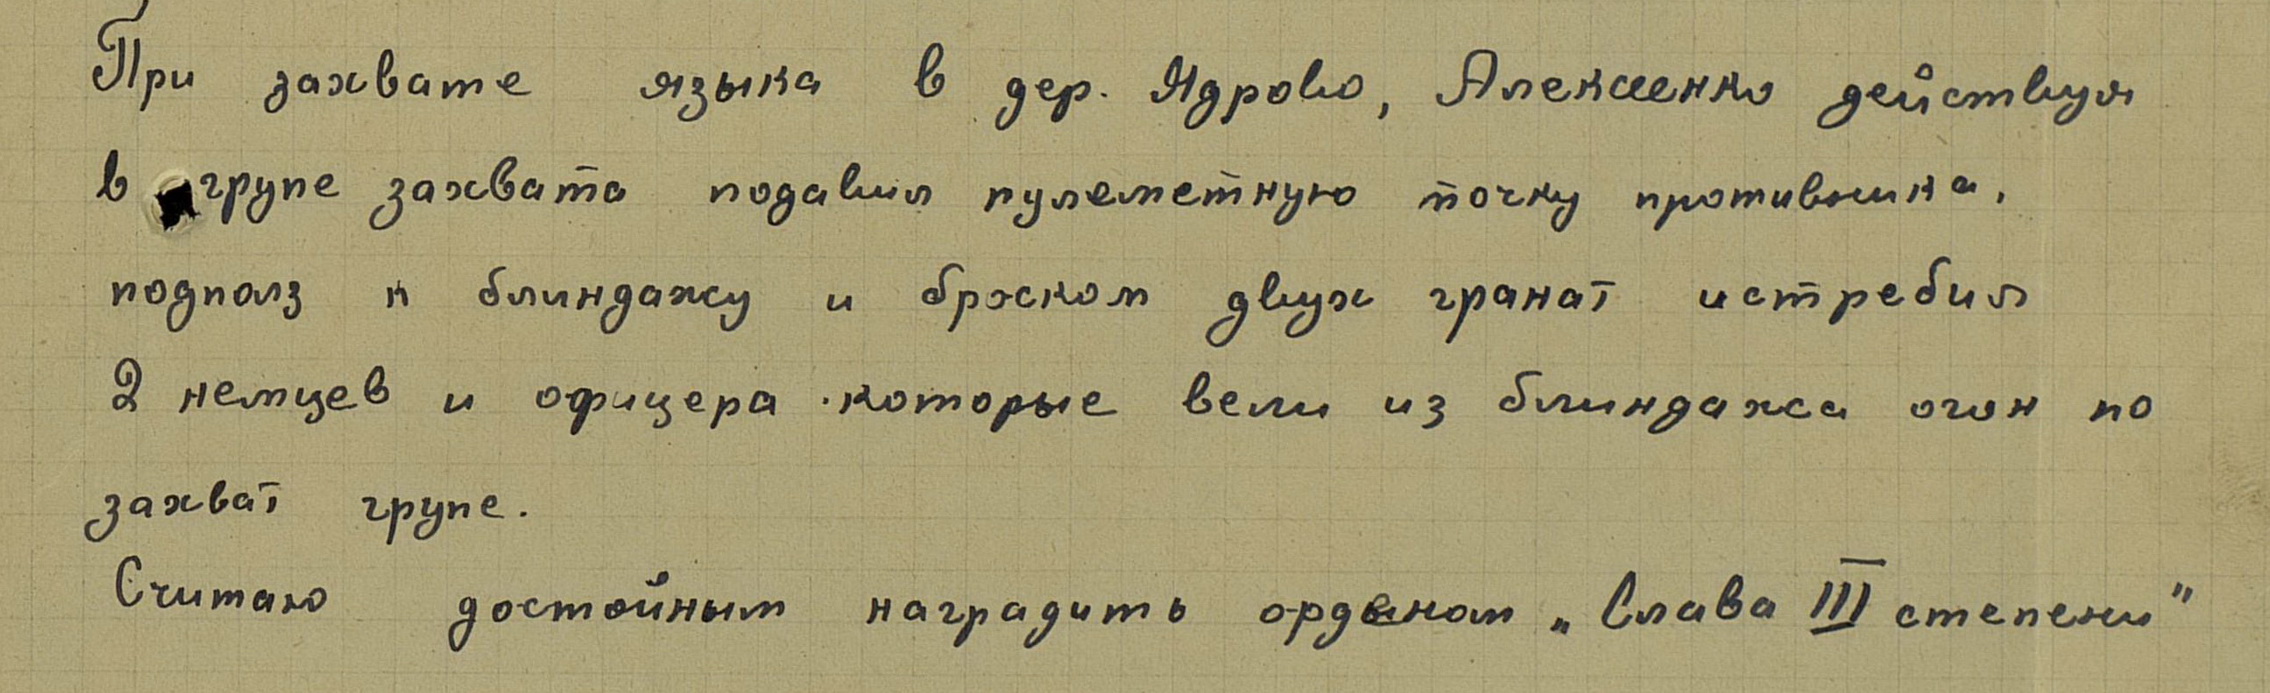 При захвате языка в дер. Ядрово, Алексеенко действуя
в групе захвата подавил пулеметную точку противника,
подполз к блиндажу и броском двух гранат истребил
2 немцев и офицера которые вели из блиндажа огон по
захват групе.
Считаю достойным наградить орденом „Слава III степени"